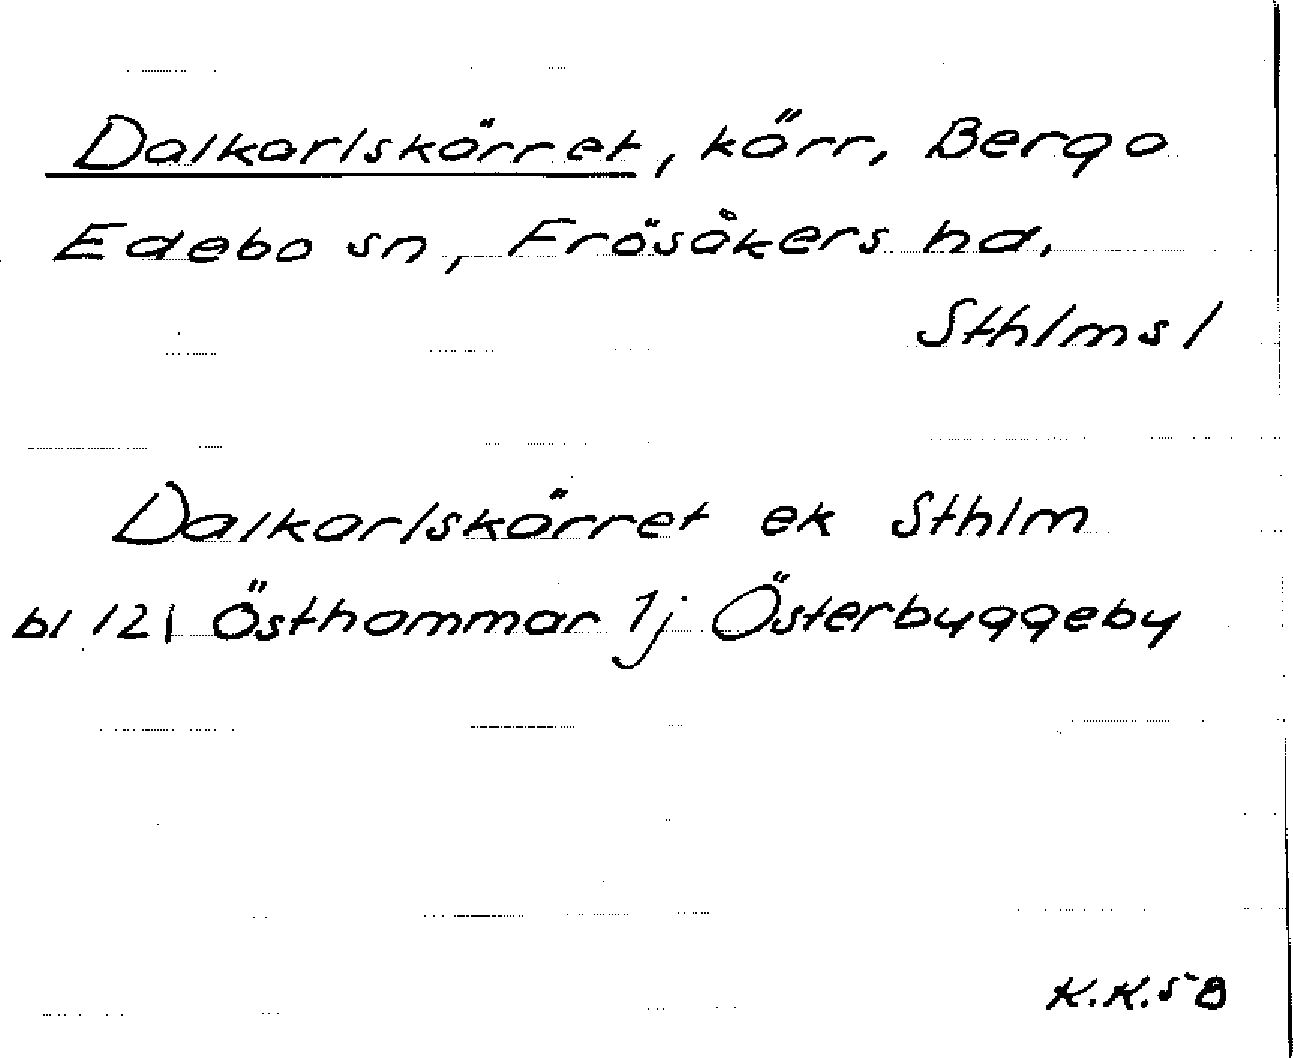 Dalkarlskärret, kärr, Berga
Edebo sn, Frösåkers hd,
Sthlms l
Dalkarlskärret ek Sthlm
bl 121 Östhammar 1j Österbyggeby
K.K.58